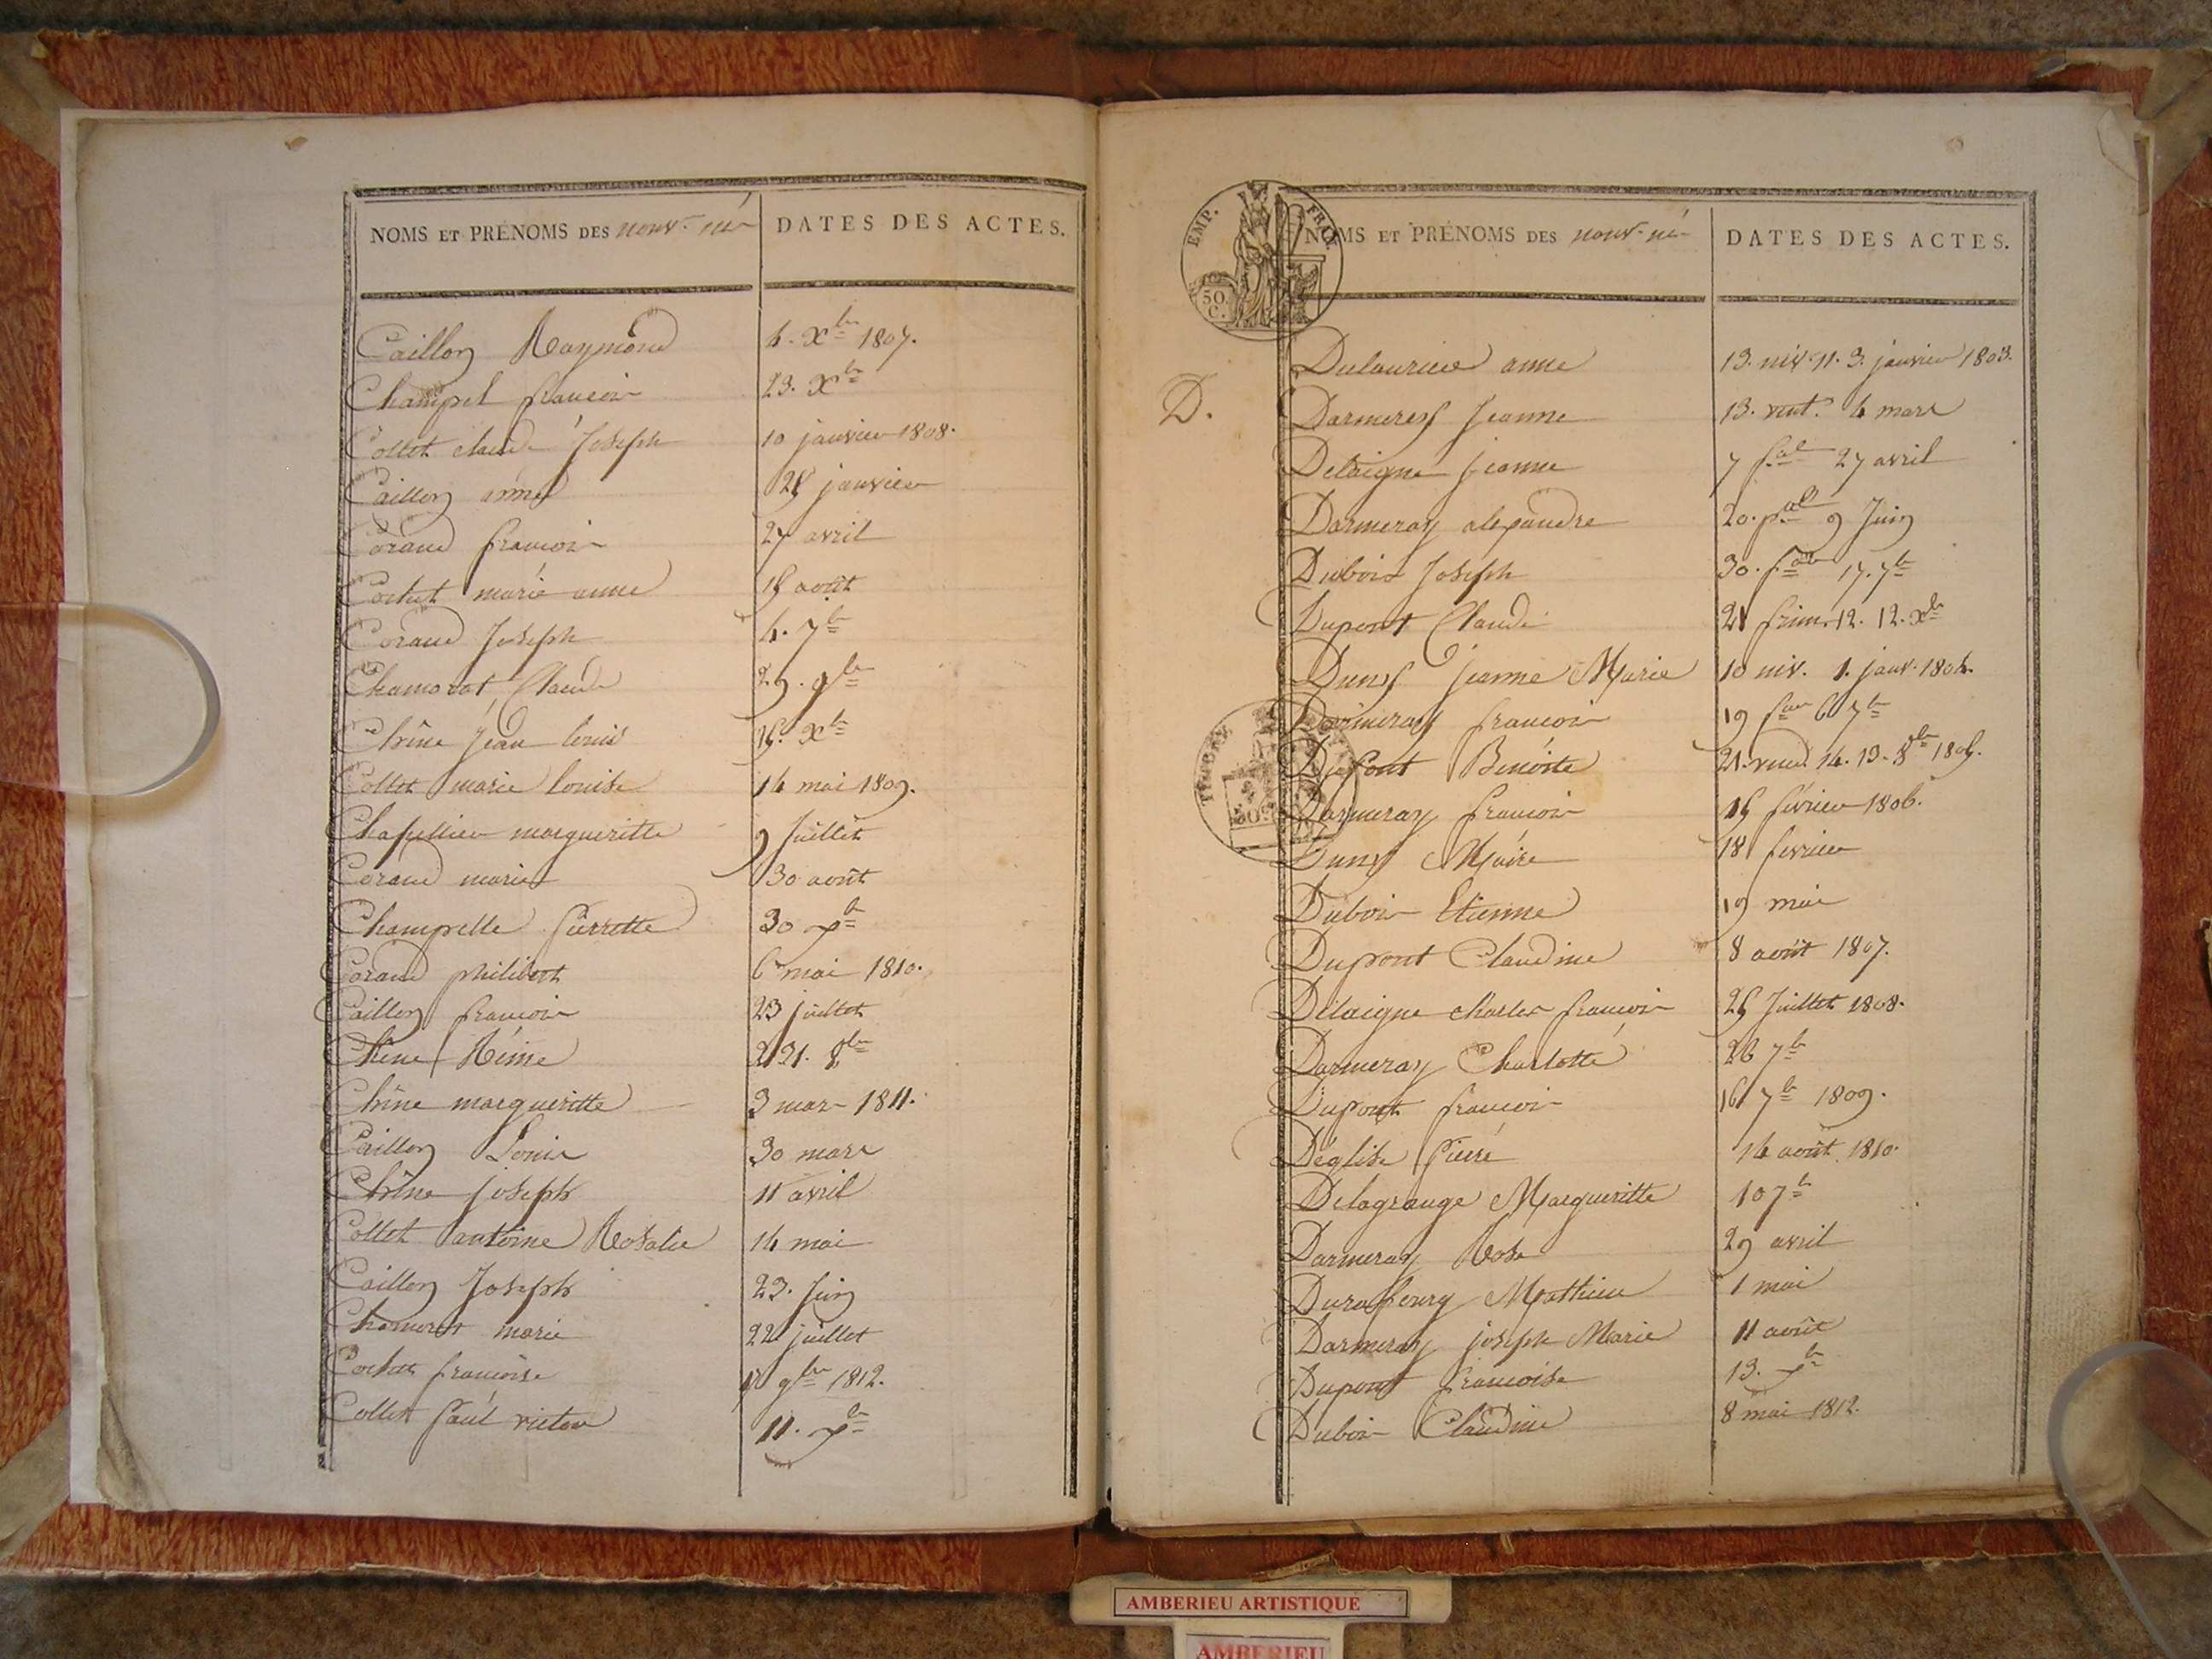 NOMS ET PRÉNOMS DES nouv. né DATES DES ACTES.
Caillon Raymond 4. Xbre 1807.
Champel francois 23. Xbre
Collet claude Joseph 10 janvier 1808.
Caillon anne janvier
Corand francois 27 avril
Cochet marie anne août
Corand Joseph 4. 7bre
Chamorat Claude 9bre
Chêne Jean louis Xbre
Collet marie louise 14 mai 1809.
Chapellier margueritte 9 Juillet
Corand marie 30 août
Champelle Pierrette 30 Xbre
Corand philibert 6 mai 1810.
Caillon francois 23 juillet
Chêne Réine 8bre
Chêne margueritte 3 mars 1811.
Caillon Louis 30 mars
Chêne joseph 11 avril
Collet antoine Rosalie 14 mai
Caillon Joseph 23. Juin
Chamorat marie 22 juillet
Cochet francoise 9bre 1812.
Collet Paul victor 11. Xbre
EMP. FRAN.
50 C.
NOMS ET PRÉNOMS DES nouv. né DATES DES ACTES.
D.
anne 13. niv. 11. 3. janvier 1803.
Jeanne 13. vent. 4 mars
Delaigne jeanne 7 27 avril
Darmeray alexandre 20. 9 Juin
Dubois Joseph 30. 17. 7bre
Dupont Claude 21 frim. 12. 12. Xbre
jeanne Marie 10 niv. 1. janv. 1804.
Darmeray francois 19 6 7bre
Dupont Benoite 21. vend. 14. 13. 8bre 1805.
Darmeray francois 15 février 1806.
Marie 18 fevrier
Dubois Etienne 19 mai
Dupont Claudine 8 août 1807.
Delaigne charles francois 25 Juillet 1808.
Darmeray Charlotte 26 7bre
Dupont francois 16 7bre 1809.
Déglise Pierre 14 août 1810.
Delagrange Margueritte 10 7bre
Darmeray Rose 29 avril
Durafourg Mathieu 1 mai
Darmeray joseph Marie 11 août
Dupont francoise 13. Xbre
Dubois Claudine 8 mai 1812.
AMBERIEU ARTISTIQUE
AMBERIEU